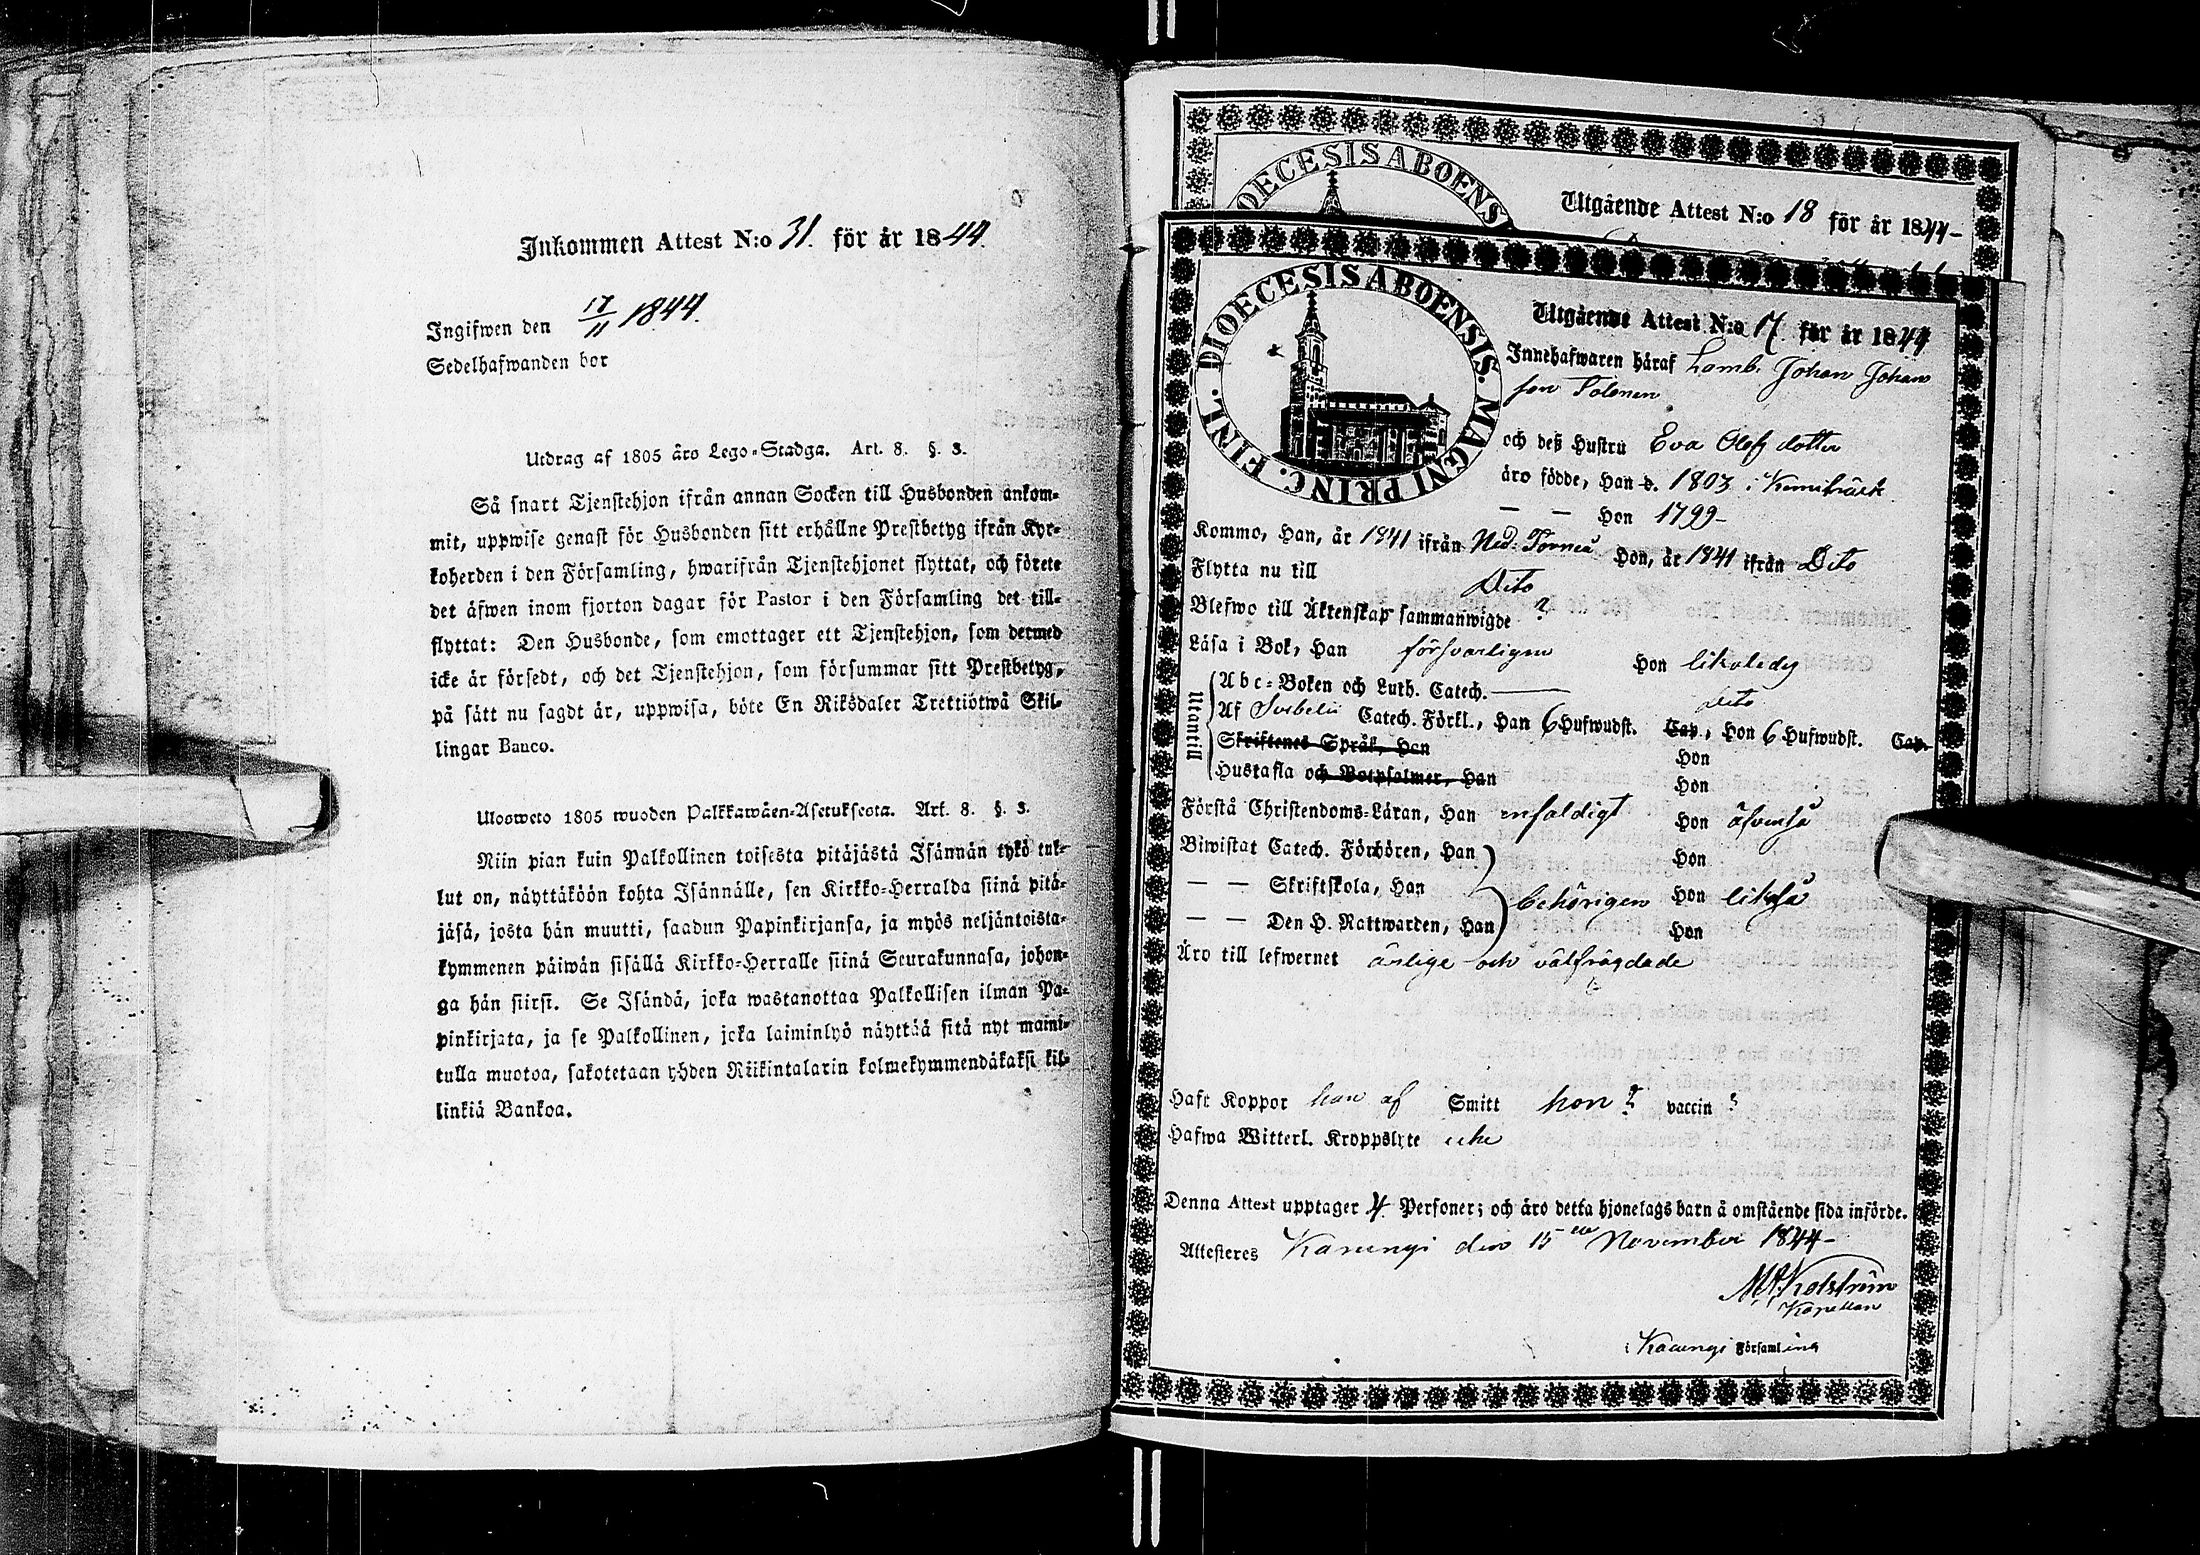 Inkommen Attest N:o 31. för år 1844.
Ingifwen den 17/11 1844.
Sedelhafwanden bor
Utdrag af 1805 års Lego-Stadga. Art. 8. §. 3.
Så snart Tjenstehjon ifrån annan Socken till Husbonden ankom-
mit, uppwise genast för Husbonden sitt erhållne Prestbetyg ifrån Kyr-
koherden i den Församling, hwarifrån Tjenstehjonet flyttat, och förete
det äfwen inom fjorton dagar för Pastor i den Församling det till-
flyttat: Den Husbonde, som emottager ett Tjenstehjon, som dermed
icke är försedt, och det Tjenstehjon, som försummar sitt Prestbetyg,
på sätt nu sagdt är, uppwisa, böte En Riksdaler Trettiotwå Skil-
lingar Banco.
Ulosweto 1805 wuoden Palkkawäen-Asetuksesta. Art. 8. §. 3.
Niin pian kuin Palkollinen toisesta pitäjästä Isännän tykö tul-
lut on, näyttäköön kohta Isännälle, sen Kirkko-Herralda siinä pitä-
jäsä, josta hän muutti, saadun Papinkirjansa, ja myös neljäntoista-
kymmenen päiwän sisällä Kirkko-Herralle siinä Seurakunnasa, johon-
ga hän siirsi. Se Isändä, joka wastanottaa Palkollisen ilman Pa-
pinkirjata, ja se Palkollinen, joka laiminlyö näyttää sitä nyt maini-
tulla muotoa, sakotetaan yhden Riikintalarin kolmekymmendäkaksi kil-
linkiä Bankoa.
DIOECESIS ABOENS
Utgående Attest N:o 18 för år 1844-
DIOECESIS ABOENSIS. MAGNI PRINC. FINL.
Utgående Attest N:o 17. för år 1844
Innehafwaren häraf Johan Johans
son Tolonen
och deß Hustru Eva Olofsdotter
äro födde, Han d. 1803 i Kemiträsk
— — Hon 1799-
Kommo, Han, år 1841 ifrån Ned: Torneå Hon, år 1841 ifrån Dito
Flytta nu till Dito
Blefwo till Äktenskap sammanwigde ?
Läsa i Bok, Han försvarligen Hon likaledes
Utantill
Abc-Boken och Luth. Catech. —— Dito
Af Svebelii Catech. Förkl., Han 6 Hufwudst. Cap., Hon 6 Hufwudst. Cap.
Skriftenes Språk, Han Hon
Hustafla och Botpsalmer, Han Hon
Förstå Christendoms-Läran, Han enfaldigt Hon äfvenså
Biwistat Catech. Förhören, Han Hon
— — Skriftskola, Han behörigen Hon likaså
— — Den H. Nattwarden, Han Hon
Äro till lefwernet ärlige och välfrägdade
Haft Koppor han af Smitt hon ? vaccin ?
Hafwa Witterl. Kroppslyte icke
Denna Attest upptager 4. Personer; och äro detta hjonelags barn å omstående sida införde.
Attesteres Karungi den 15 en November 1844-
Kapellan
i Karungi Församling